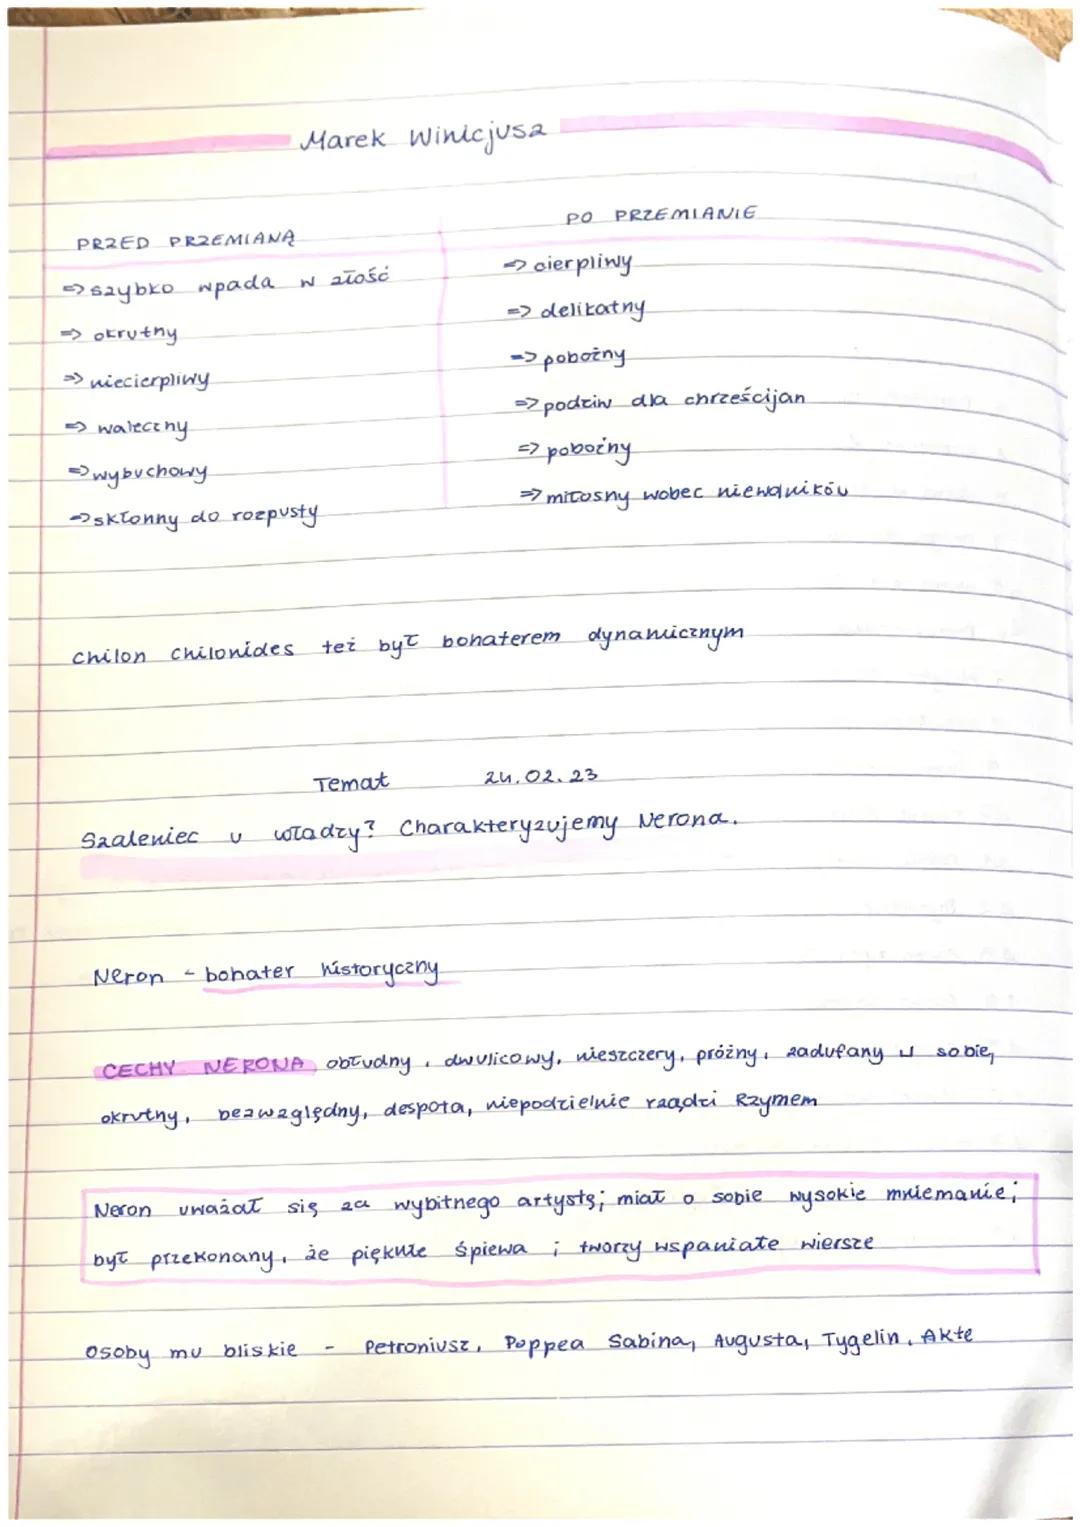 Marek Winicjusz
PRZED PRZEMIANĄ
⇒ szybko wpada w złość
⇒ okrutny
⇒ niecierpliwy
⇒ waleczny
⇒ wybuchowy
⇒ skłonny do rozpusty
PO PRZEMIANIE
⇒ cierpliwy
⇒ delikatny
⇒ pobożny
⇒ podziw dla chrześcijan
⇒ pobożny
⇒ miłosny wobec niewolników
Chilon Chilonides też był bohaterem dynamicznym
Temat 24.02.23
Szaleniec u władzy? Charakteryzujemy Nerona.
Neron - bohater historyczny
CECHY NERONA obłudny, dwulicowy, nieszczery, próżny, zadufany w sobie,
okrutny, bezwzględny, despota, niepodzielnie rządzi Rzymem
Neron uważał się za wybitnego artystę; miał o sobie wysokie mniemanie;
był przekonany, że pięknie śpiewa i tworzy wspaniałe wiersze
Osoby mu bliskie - Petroniusz, Poppea Sabina, Augusta, Tygelin, Akte